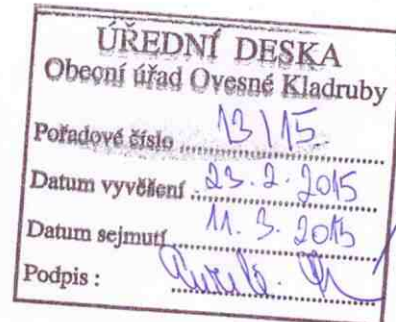 ÚŘEDNÍ DESKA
Obecní úřad Ovesné Kladruby
Pořadové číslo 13/15
Datum vyvěšení 23. 2. 2015
Datum sejmutí 11. 3. 2015
Podpis :